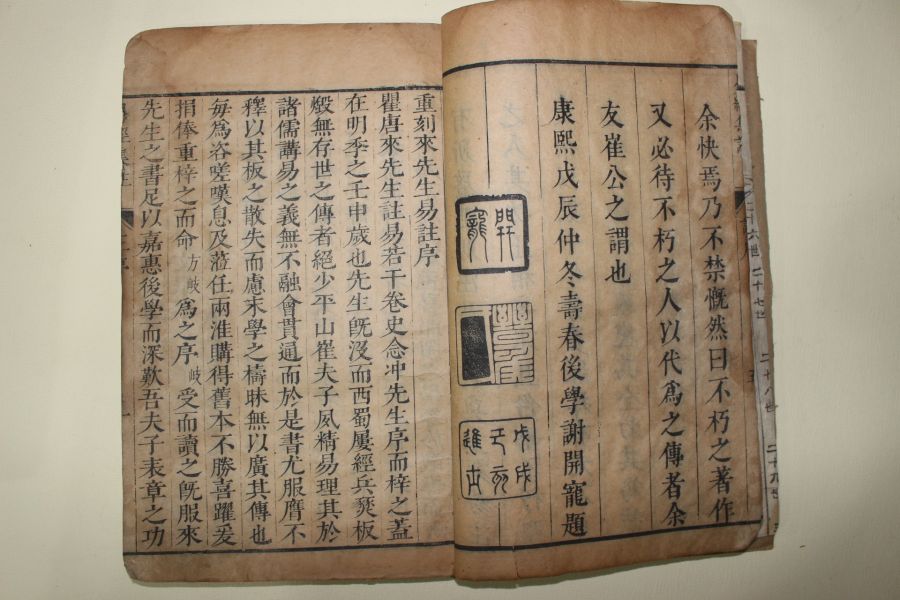 二十六世 二十七世 二十八世 二十九世
余快焉乃不禁慨然曰不朽之著作
又必待不朽之人以代爲之傳者余
友崔公之謂也
康熙戊辰仲冬壽春後學謝開寵題
開寵
戊戌
進士
重刻來先生易註序
瞿唐來先生註易若干卷史念冲先生序而梓之蓋
在明季之壬申歲也先生旣沒而西蜀屢經兵燹板
燬無存世之傳者絕少平山崔夫子夙精易理其於
諸儒講易之義無不融會貫通而於是書尤服膺不
釋以其板之散失而慮末學之檮昧無以廣其傳也
每爲咨嗟嘆息及蒞仕兩淮購得舊本不勝喜躍爰
捐俸重梓之而命方岐爲之序岐受而讀之旣服來
先生之書足以嘉惠後學而深歎吾夫子表章之功